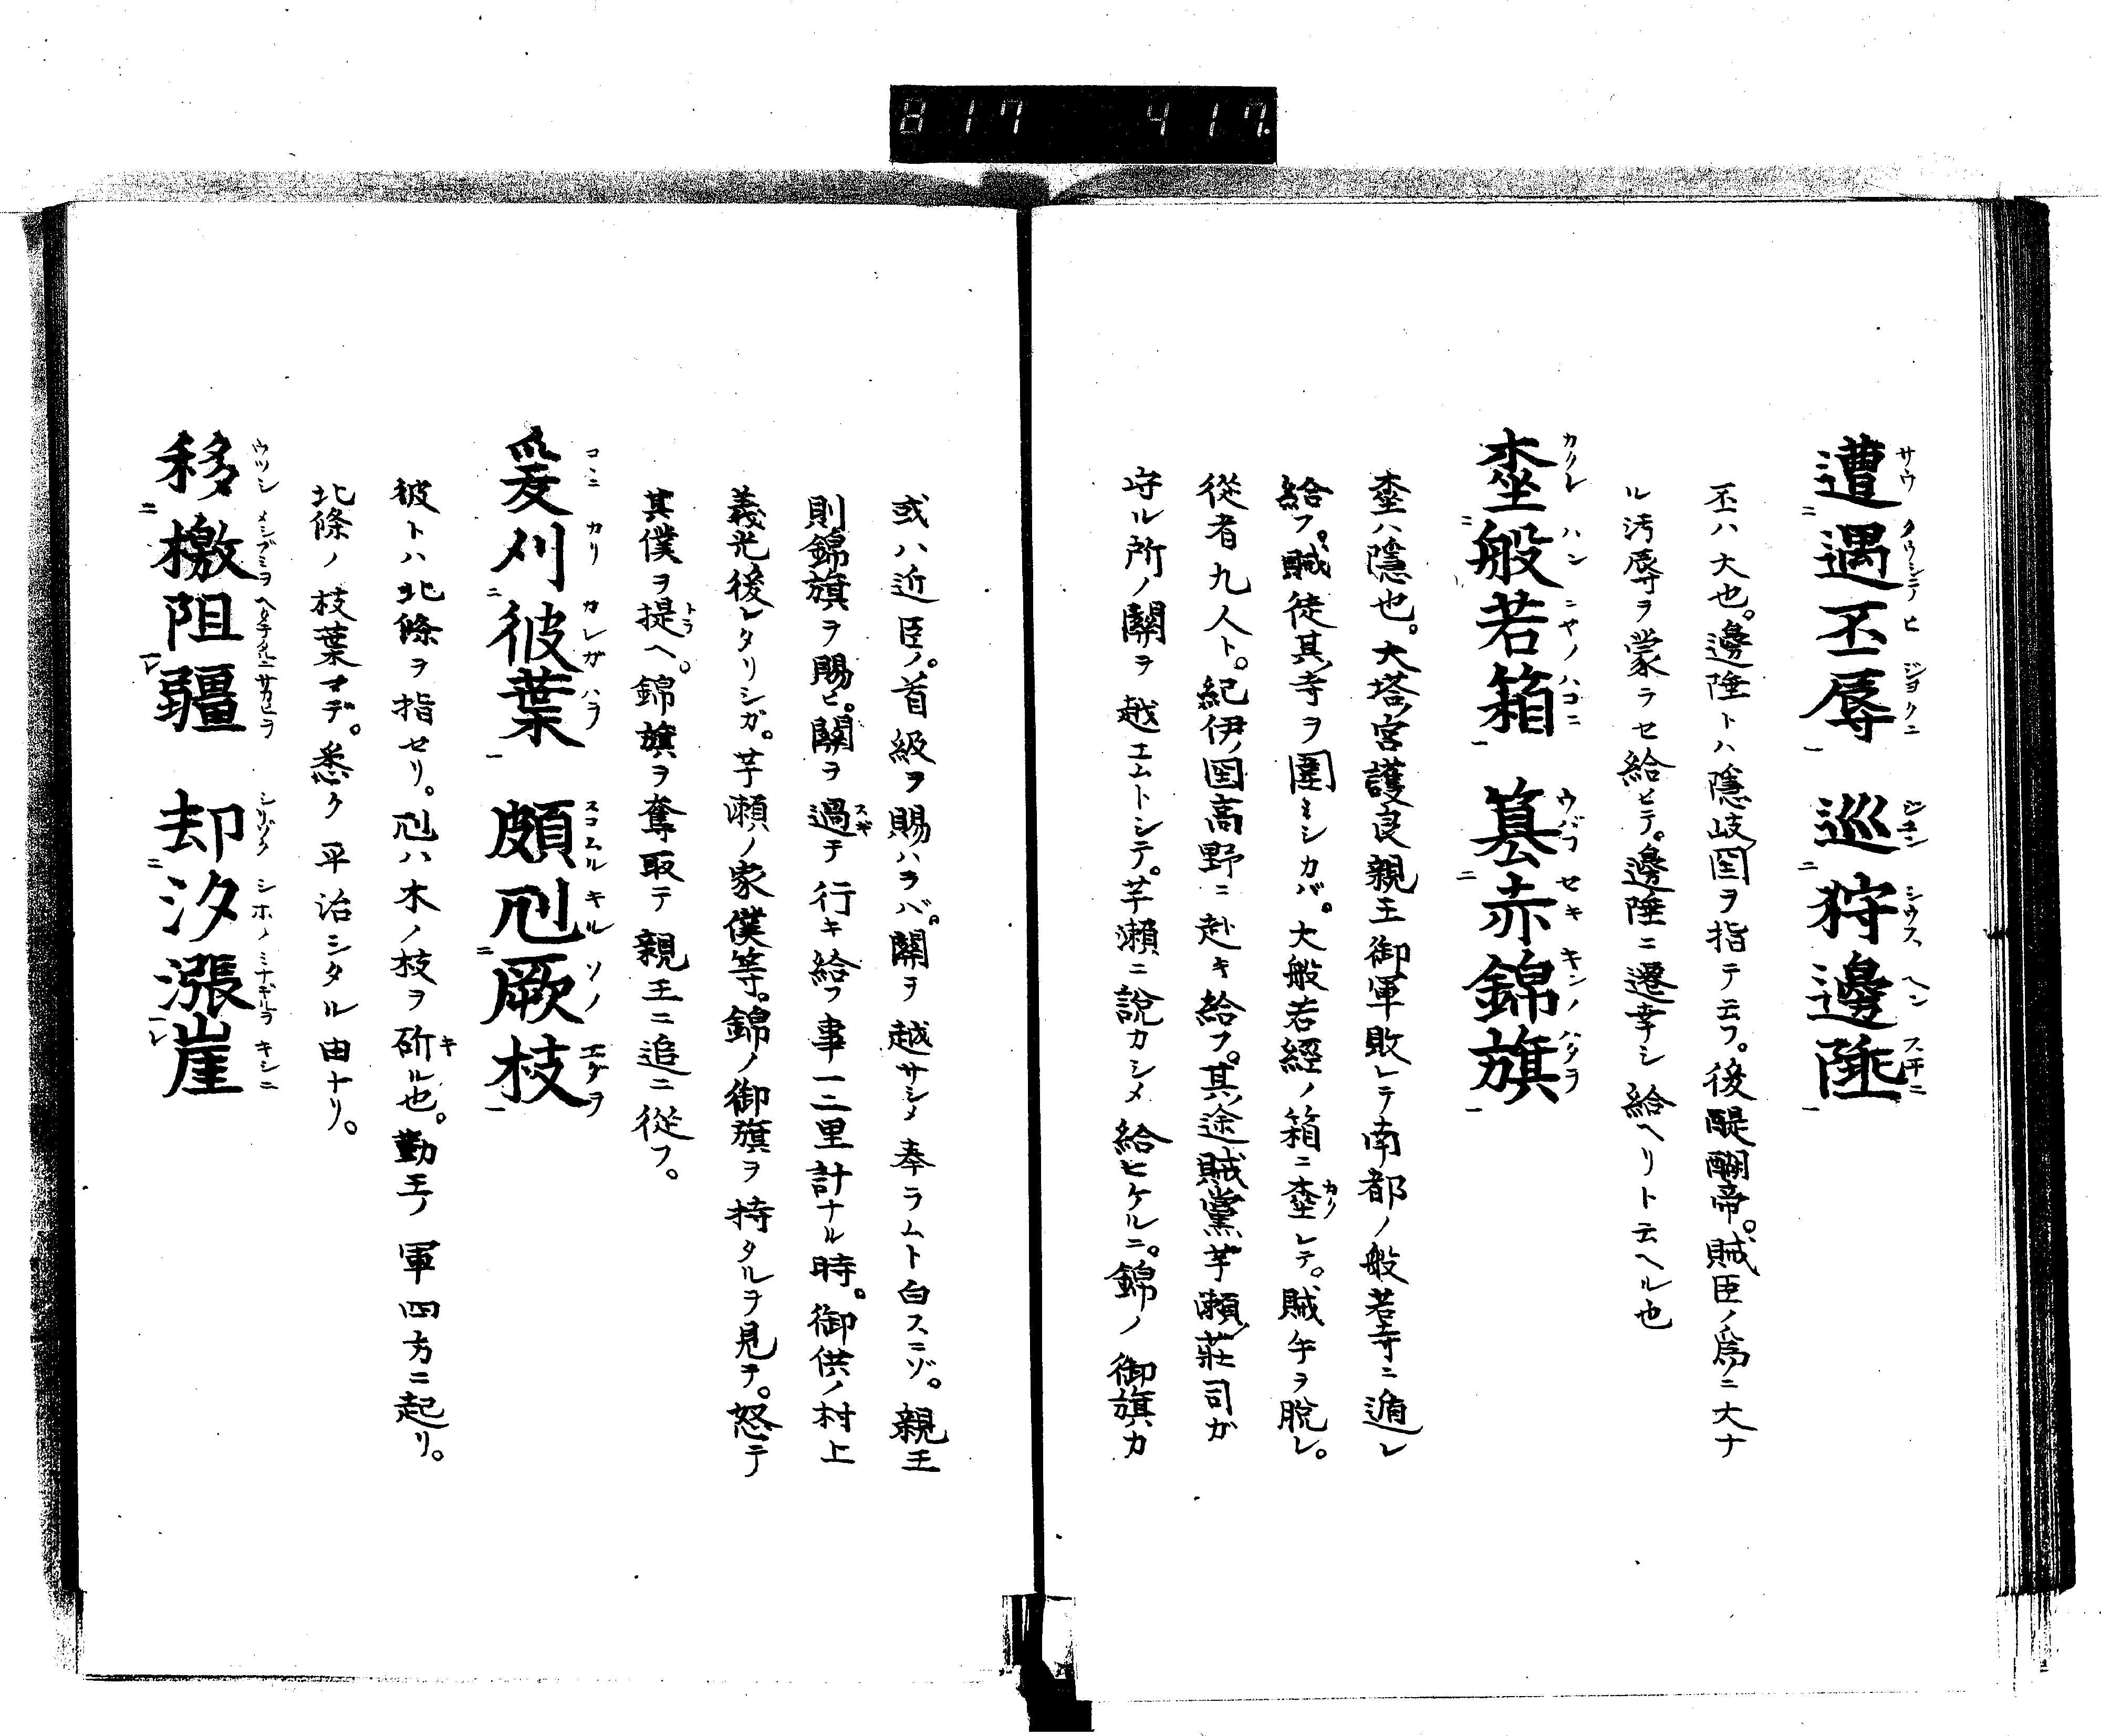 817 417.
遭遇丕辱 巡狩邊陲
丕ハ大也。邊陲トハ隱岐国ヲ指テ云フ。後醍醐帝。賊臣ノ爲ニ大ナ
ル汚辱ヲ蒙ラセ給ヒテ。邊陲ニ遷幸シ給ヘリト云ヘル也
桽般若箱 簒赤錦旗
桽ハ隱也。大塔宮護良親王御軍敗レテ南都ノ般若寺ニ遁レ
給フ。賊徒其寺ヲ圍ミシカバ。大般若經ノ箱ニ桽レテ。賊手ヲ脫レ。
從者九人ト。紀伊ノ国高野ニ赴キ給フ。其途賊黨芋瀬ノ莊司ガ
守ル所ノ關ヲ越エムトシテ。芋瀬ニ說カシメ給ヒケルニ。錦ノ御旗カ
或ハ近臣ノ。首級ヲ賜ハラバ。關ヲ越サシメ奉ラムト白スニゾ。親王
則錦旗ヲ賜ヒ。關ヲ過テ行キ給フ事一二里計ナル時。御供ノ村上
義光後レタリシガ。芋瀬ノ家僕等。錦ノ御旗ヲ持タルヲ見テ。怒テ
其僕ヲ提ヘ。錦旗ヲ奪取テ親王ニ追ニ從フ。
爰刈彼葉 頗刓厥枝
彼トハ北條ヲ指セリ。刓ハ木ノ枝ヲ斫ル也。勤王ノ軍四方ニ起リ。
北條ノ枝葉マデ。悉ク平治シタル由ナリ。
移檄阻疆 却汐漲崖